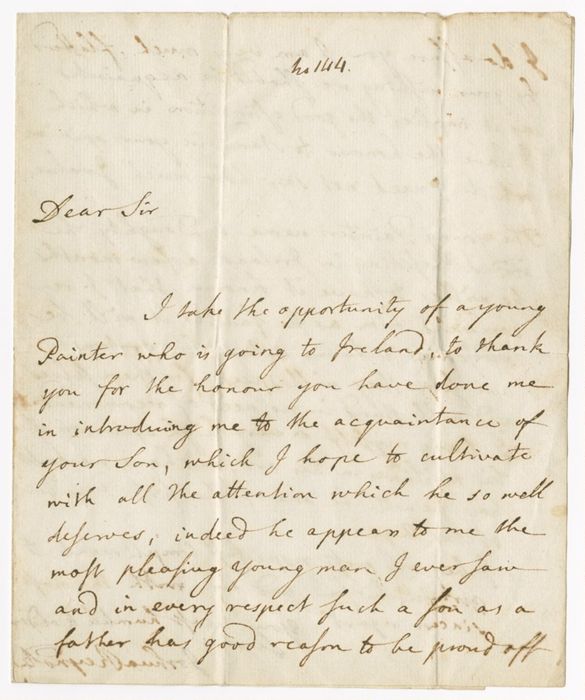 No 144.
Dear Sir
I take the opportunity of a young
Painter who is going to Ireland, to thank
you for the honour you have done me
in introducing me to the acquaintance of
your Son, which I hope to cultivate
with all the attention which he so well
deserves, indeed he appears to me the
most pleasing young man I ever saw
and in every respect such a son as a
father has good reason to be proud off